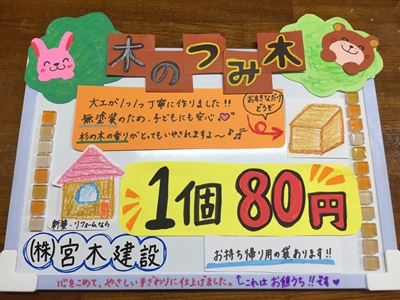 木のつみ木
大工が1つ1つ丁寧に作りました!!
無塗装のため、子どもにも安心♥
杉の木の香りがとってもいやされますよ〜♪♬
お好きなだけ
どうぞ
1個 80円
新築・リフォームなら
(株)宮木建設
お持ち帰り用の袋あります!!
心をこめて、やさしい手ざわりに仕上げました。
これは お値うち!!です♥